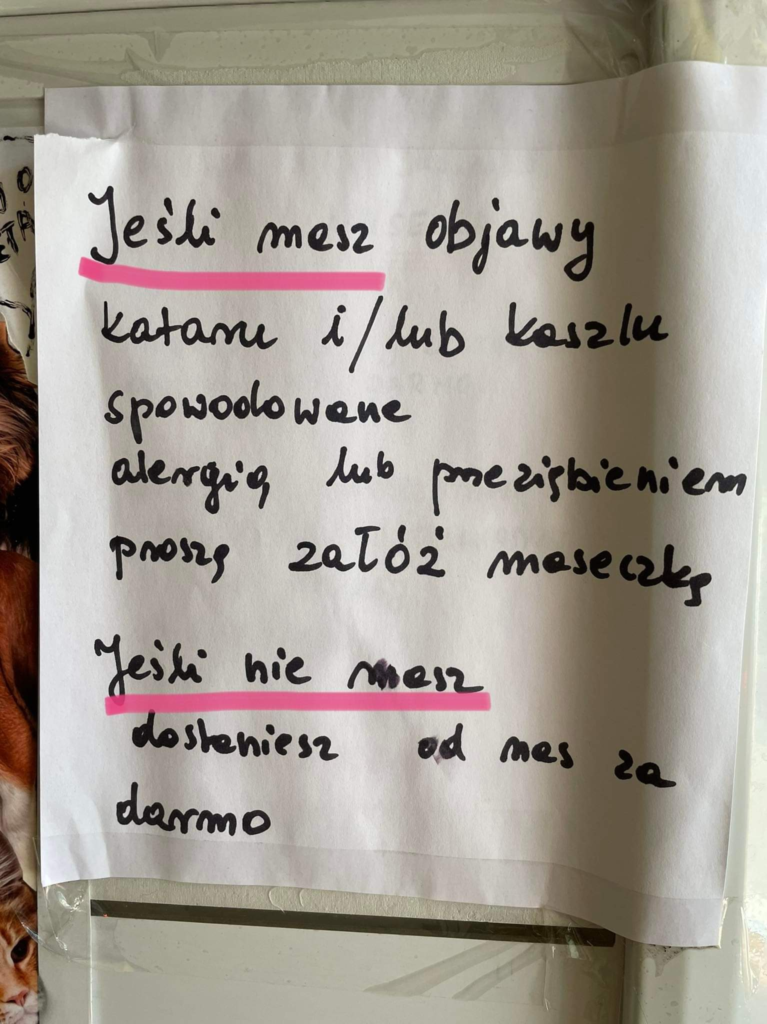 Jeśli masz objawy
kataru i/lub kaszlu
spowodowane
alergią lub przeziębieniem
proszę załóż maseczkę
Jeśli nie masz
dostaniesz od nas za
darmo